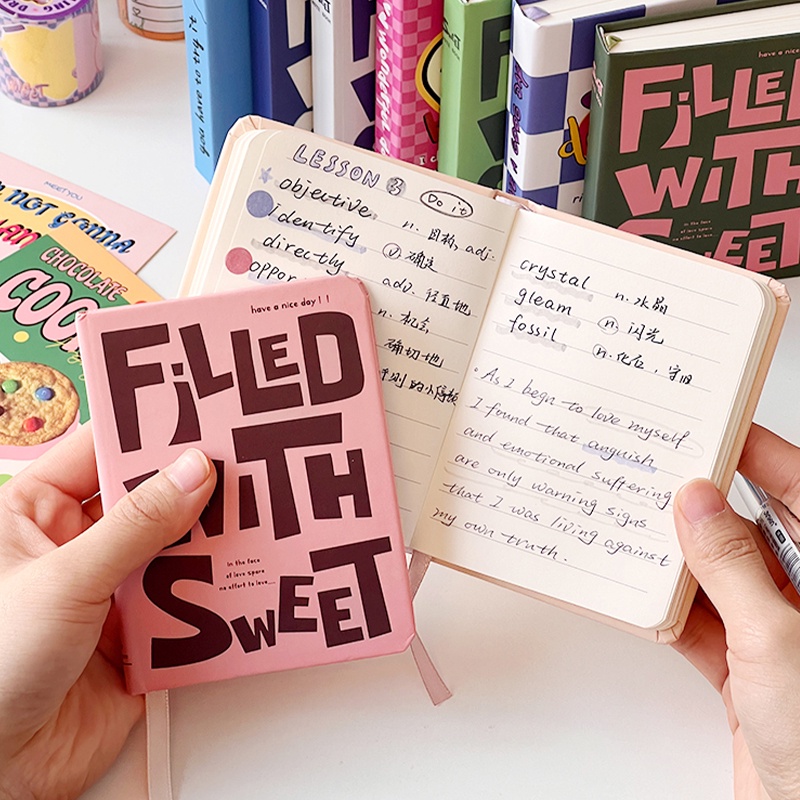 you have to try it
MEET YOU
I'M NOT GONNA
CHOCOLATE
have a nice
FiLLED
WiTH
SWEET
In the face
of love spare
no effort to love....
LESSON 3
Do it
objective n. 目标, adj.
identify ⓥ 确定
directly adv. 径直地
oppor
n. 机会
确切地
crystal n. 水晶
gleam ⓝ 闪光
fossil ⓝ.化石，守旧
· As I begn to love myself
I found that anguish
and emotional suffering
are only warning signs
that I was living against
my own truth.
have a nice day!!
FiLLED
WiTH
SWEET
In the face
of love spare
no effort to love....